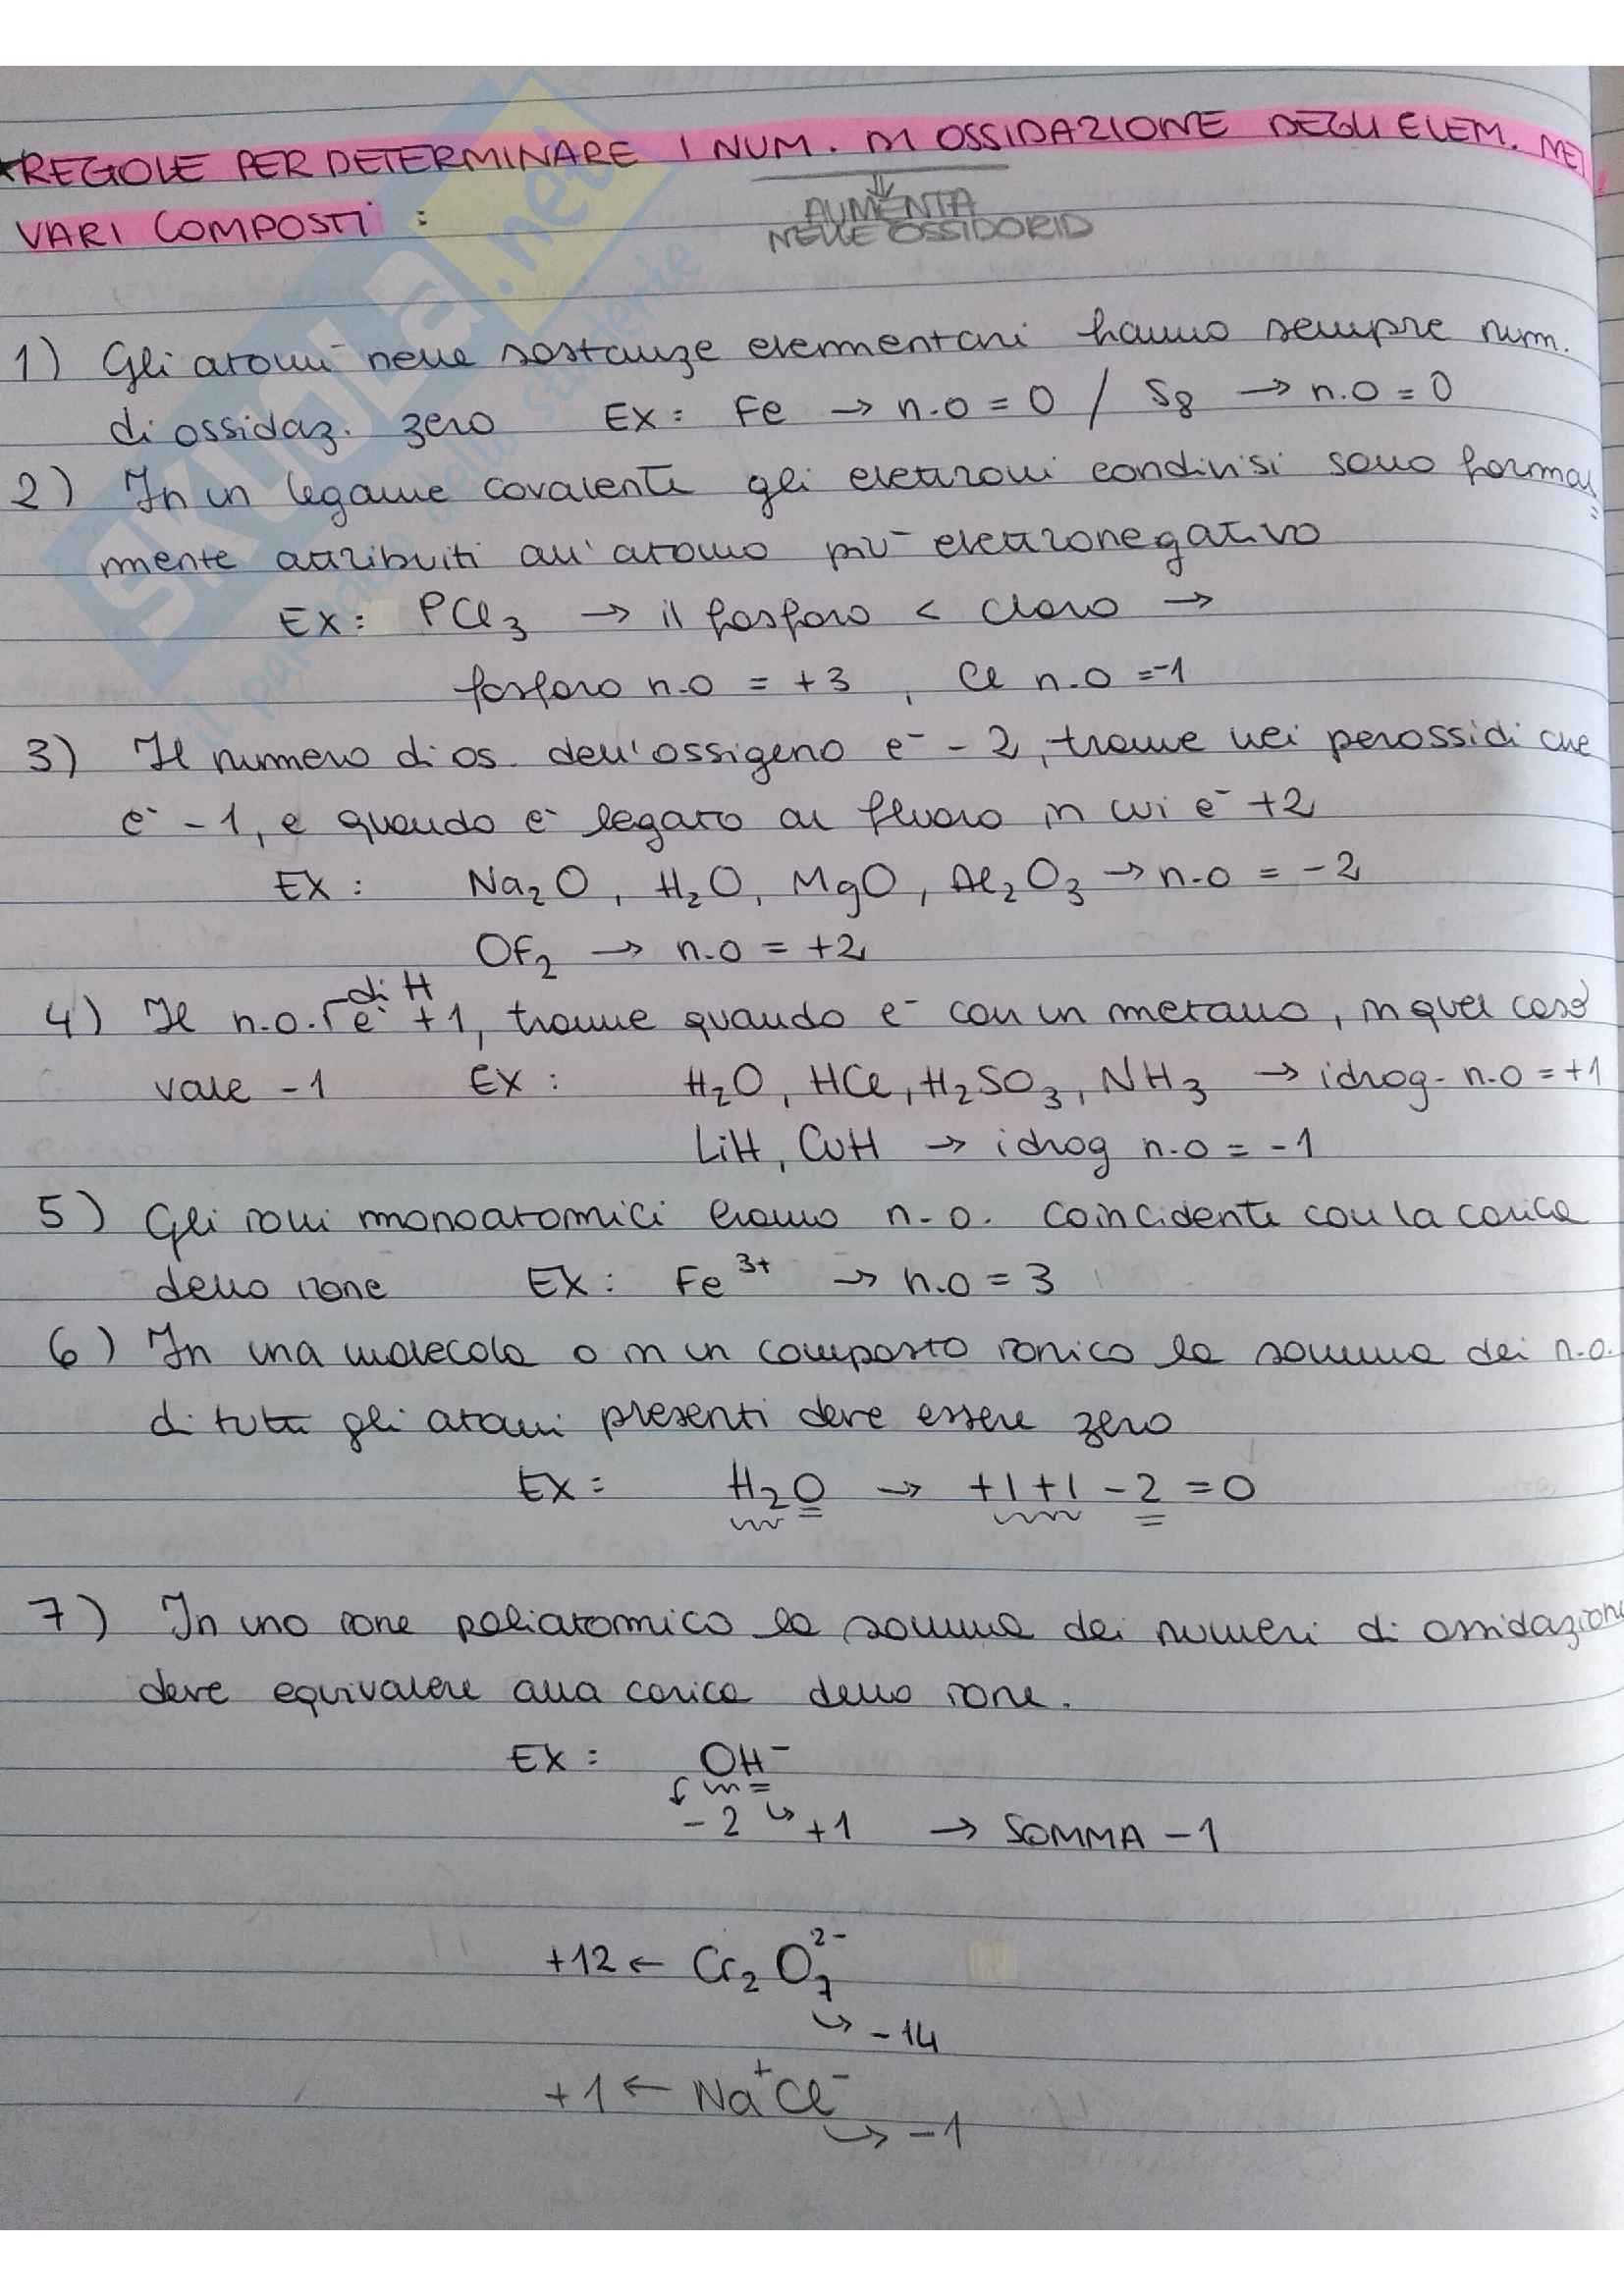 *REGOLE PER DETERMINARE I NUM. DI OSSIDAZIONE DEGLI ELEM. NEI
VARI COMPOSTI :
AUMENTA
NELLE OSSIDORID
1) Gli atomi nelle sostanze elementari hanno sempre num.
di ossidaz. zero Ex: Fe → n.o = 0 / S8 → n.o = 0
2) In un legame covalente gli elettroni condivisi sono formal
mente attribuiti all'atomo più elettronegativo
Ex: PCl3 → il fosforo < cloro →
fosforo n.o = +3 , Cl n.o = -1
3) Il numero di os. dell'ossigeno è -2, tranne nei perossidi che
è -1, e quando è legato al fluoro in cui è +2
Ex : Na2O , H2O, MgO , Al2O3 → n.o = -2
OF2 → n.o = +2
4) Il n.o. di H è +1, tranne quando è con un metallo, in quel caso
vale -1 Ex : H2O , HCl, H2SO3, NH3 → idrog. n.o = +1
LiH, CuH → idrog n.o = -1
5) Gli ioni monoatomici hanno n.o. coincidente con la carica
dello ione Ex: Fe3+ → n.o = 3
6) In una molecola o in un composto ionico la somma dei n.o.
di tutti gli atomi presenti deve essere zero
Ex: H2O → +1+1-2 = 0
7) In uno ione poliatomico la somma dei numeri di ossidazione
deve equivalere alla carica dello ione.
Ex : OH-
-2 +1 → SOMMA -1
+12 ← Cr2O7 2-
-14
+1 ← Na+Cl-
-1
SKUOLA.net
il paradiso dello studente